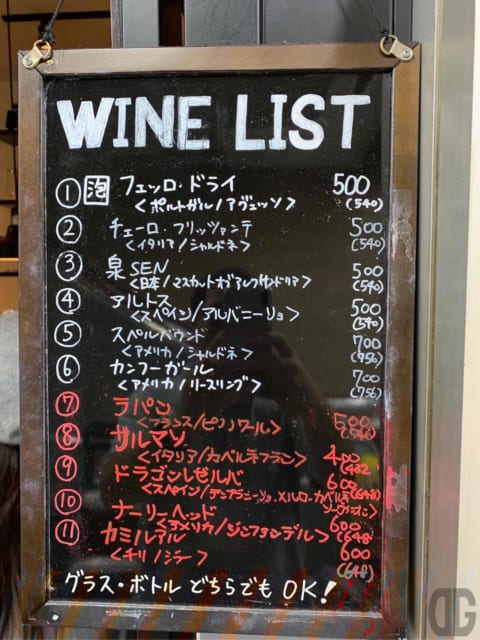 WINE LIST
① 泡 フェッロ・ドライ 500
<ポルトガル/アヴェッソ> (540)
② チェーロ・フリッツァンテ 500
<イタリア/シャルドネ> (540)
③ 泉SEN 500
<日本/マスカットオブアレクサンドリア> (540)
④ アルトス 500
<スペイン/アルバニーリョ> (540)
⑤ スペルバウンド 700
<アメリカ/シャルドネ> (756)
⑥ カンフーガール 700
<アメリカ/リースリング> (756)
⑦ ラパン 500
<フランス/ピノノワール> (540)
⑧ サルマソ 400
<イタリア/カベルネフラン> (432
⑨ ドラゴンレゼルバ 600
<スペイン/テンプラニーリョ、メルロ・カベルネ (648)
⑩ ナーリーヘッド 600
<アメリカ/ジンファンデル> (648
⑪ カミルアル 600
<チリ/シラー> (648)
グラス・ボトル どちらでも OK!